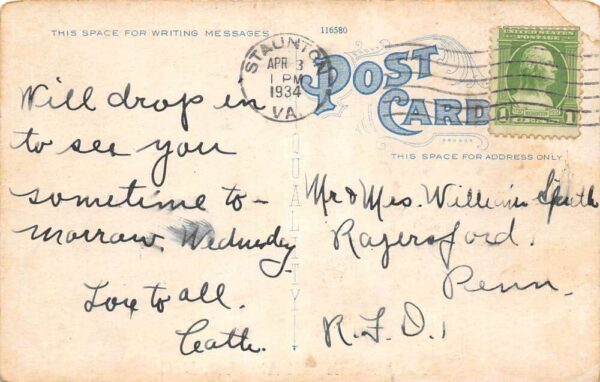 THIS SPACE FOR WRITING MESSAGES
116580
STAUNTON,
APR 3
1 PM
1934
VA.
POST
CARD
UNITED STATES
POSTAGE
1 1
THIS SPACE FOR ADDRESS ONLY
QUALITY
Will drop in
to see you
sometime to-
morrow, Wednesday
Love to all.
Cath.
Mr & Mes. William
Royersford,
Penn.
R.F.D.